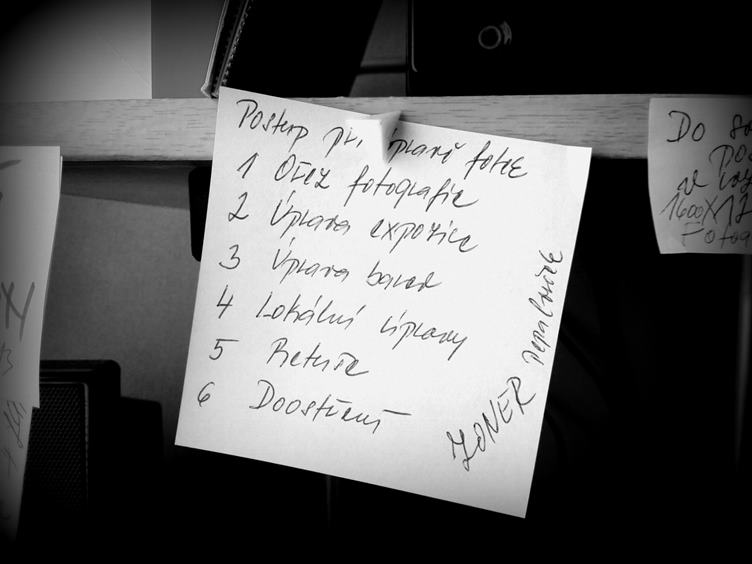 Postup při úpravě fotek
1 Ořez fotografie
2 Úprava expozice
3 Úprava barev
4 Lokální úpravy
5 Retuše
6 Doostření
ZONER
Do
v
1600X12